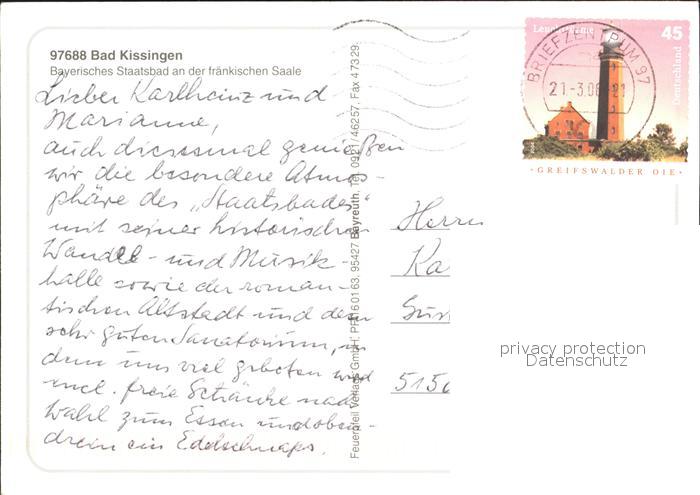 97688 Bad Kissingen
Bayerisches Staatsbad an der fränkischen Saale
Lieber Karlheinz und
Marianne,
auch diesesmal genießen
wir die besondere Atmos-
phäre des „Staatsbades"
mit seiner historischen
Wandel- und Musik-
halle sowie der roman-
tischen Altstadt und dem
sehr guten Sanatorium, in
dem uns viel geboten wird
incl. freie Getränke nach
Wahl zum Essen und oben-
drein ein Edelschnaps.
Feuerpfeil Verlags GmbH, PF 160163, 95427 Bayreuth, Tel. 0921/46257, Fax 47329
Herrn
Ka
5150
45
Deutschland
BRIEFZENTRUM 97
21
GREIFSWALDER OIE
privacy protection
Datenschutz